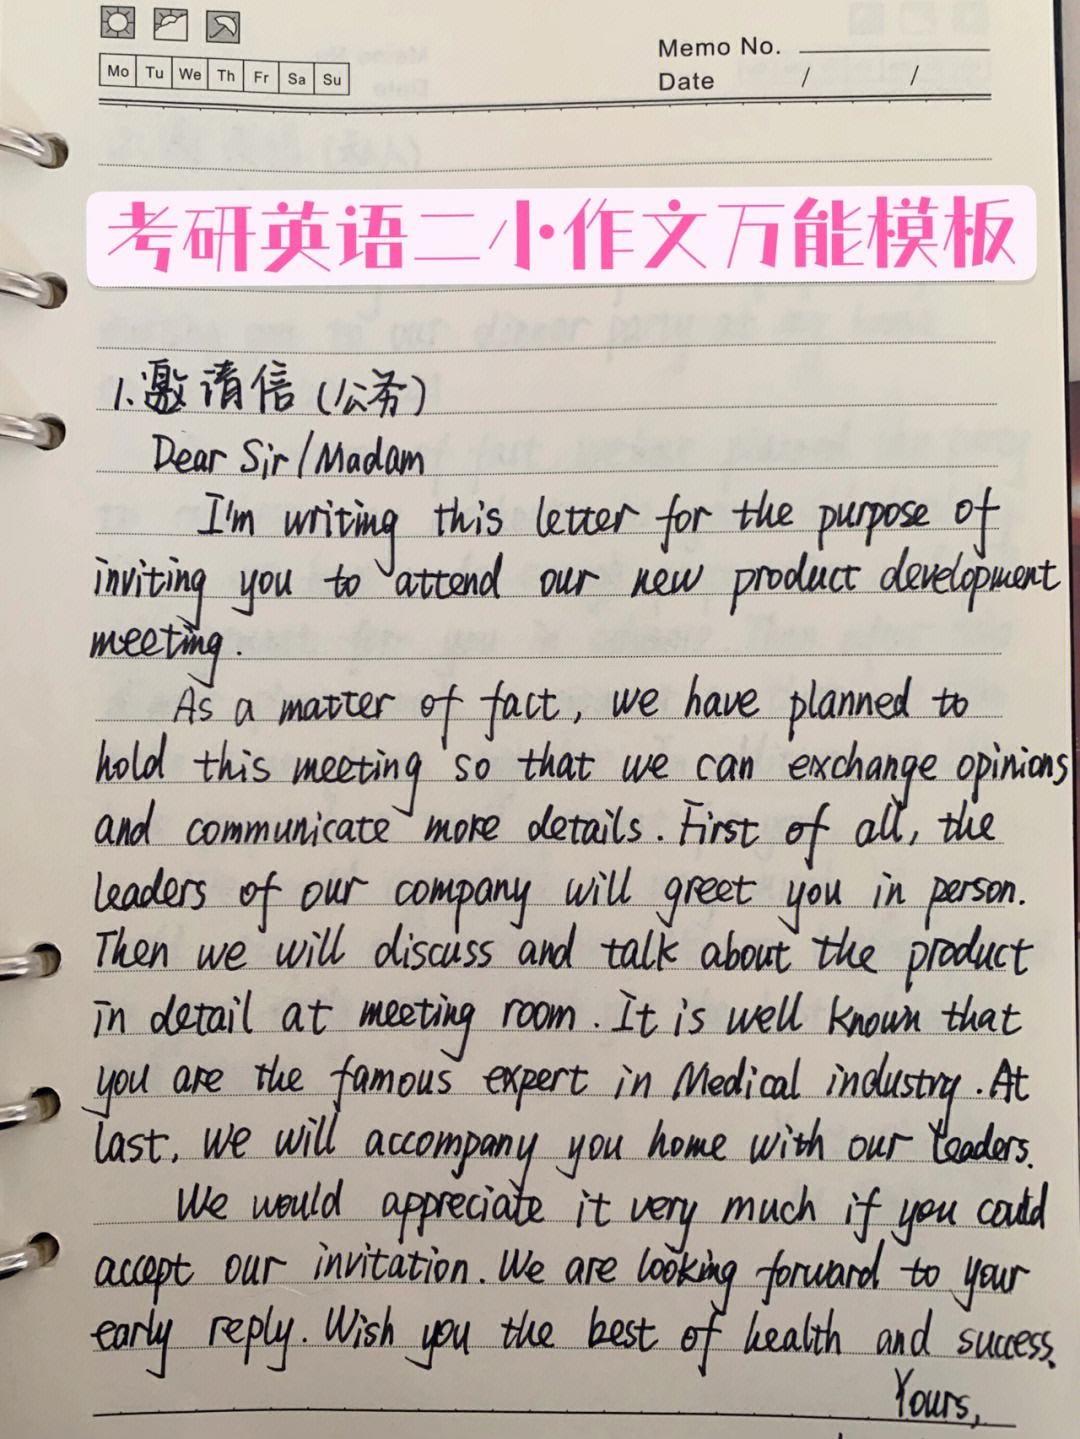 Mo Tu We Th Fr Sa Su
Memo No.
Date / /
考研英语二小作文万能模板
1.邀请信(公务)
Dear Sir/Madam
I'm writing this letter for the purpose of
inviting you to attend our new product development
meeting.
As a matter of fact, we have planned to
hold this meeting so that we can exchange opinions
and communicate more details. First of all, the
leaders of our company will greet you in person.
Then we will discuss and talk about the product
in detail at meeting room. It is well known that
you are the famous expert in Medical industry. At
last, we will accompany you home with our leaders.
We would appreciate it very much if you could
accept our invitation. We are looking forward to your
early reply. Wish you the best of health and success.
Yours,